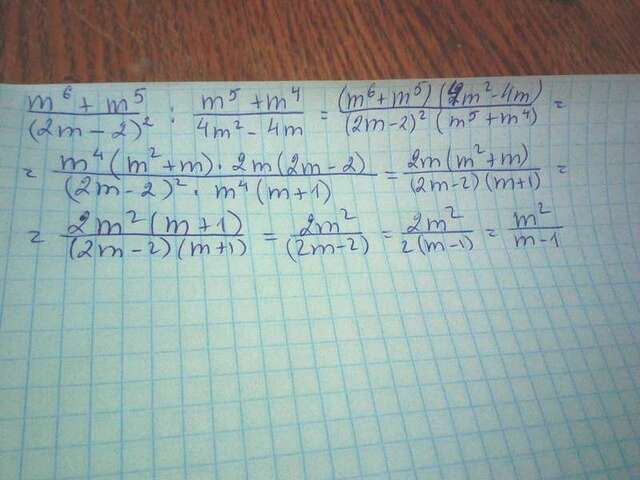 (m^6 + m^5)/(2m - 2)^2 : (m^5 + m^4)/(4m^2 - 4m) = ((m^6 + m^5)(4m^2 - 4m))/((2m - 2)^2 (m^5 + m^4)) =
= (m^4(m^2 + m) · 2m(2m - 2))/((2m - 2)^2 · m^4(m + 1)) = (2m(m^2 + m))/((2m - 2)(m + 1)) =
= (2m^2(m + 1))/((2m - 2)(m + 1)) = 2m^2/(2m - 2) = 2m^2/2(m - 1) = m^2/(m - 1)